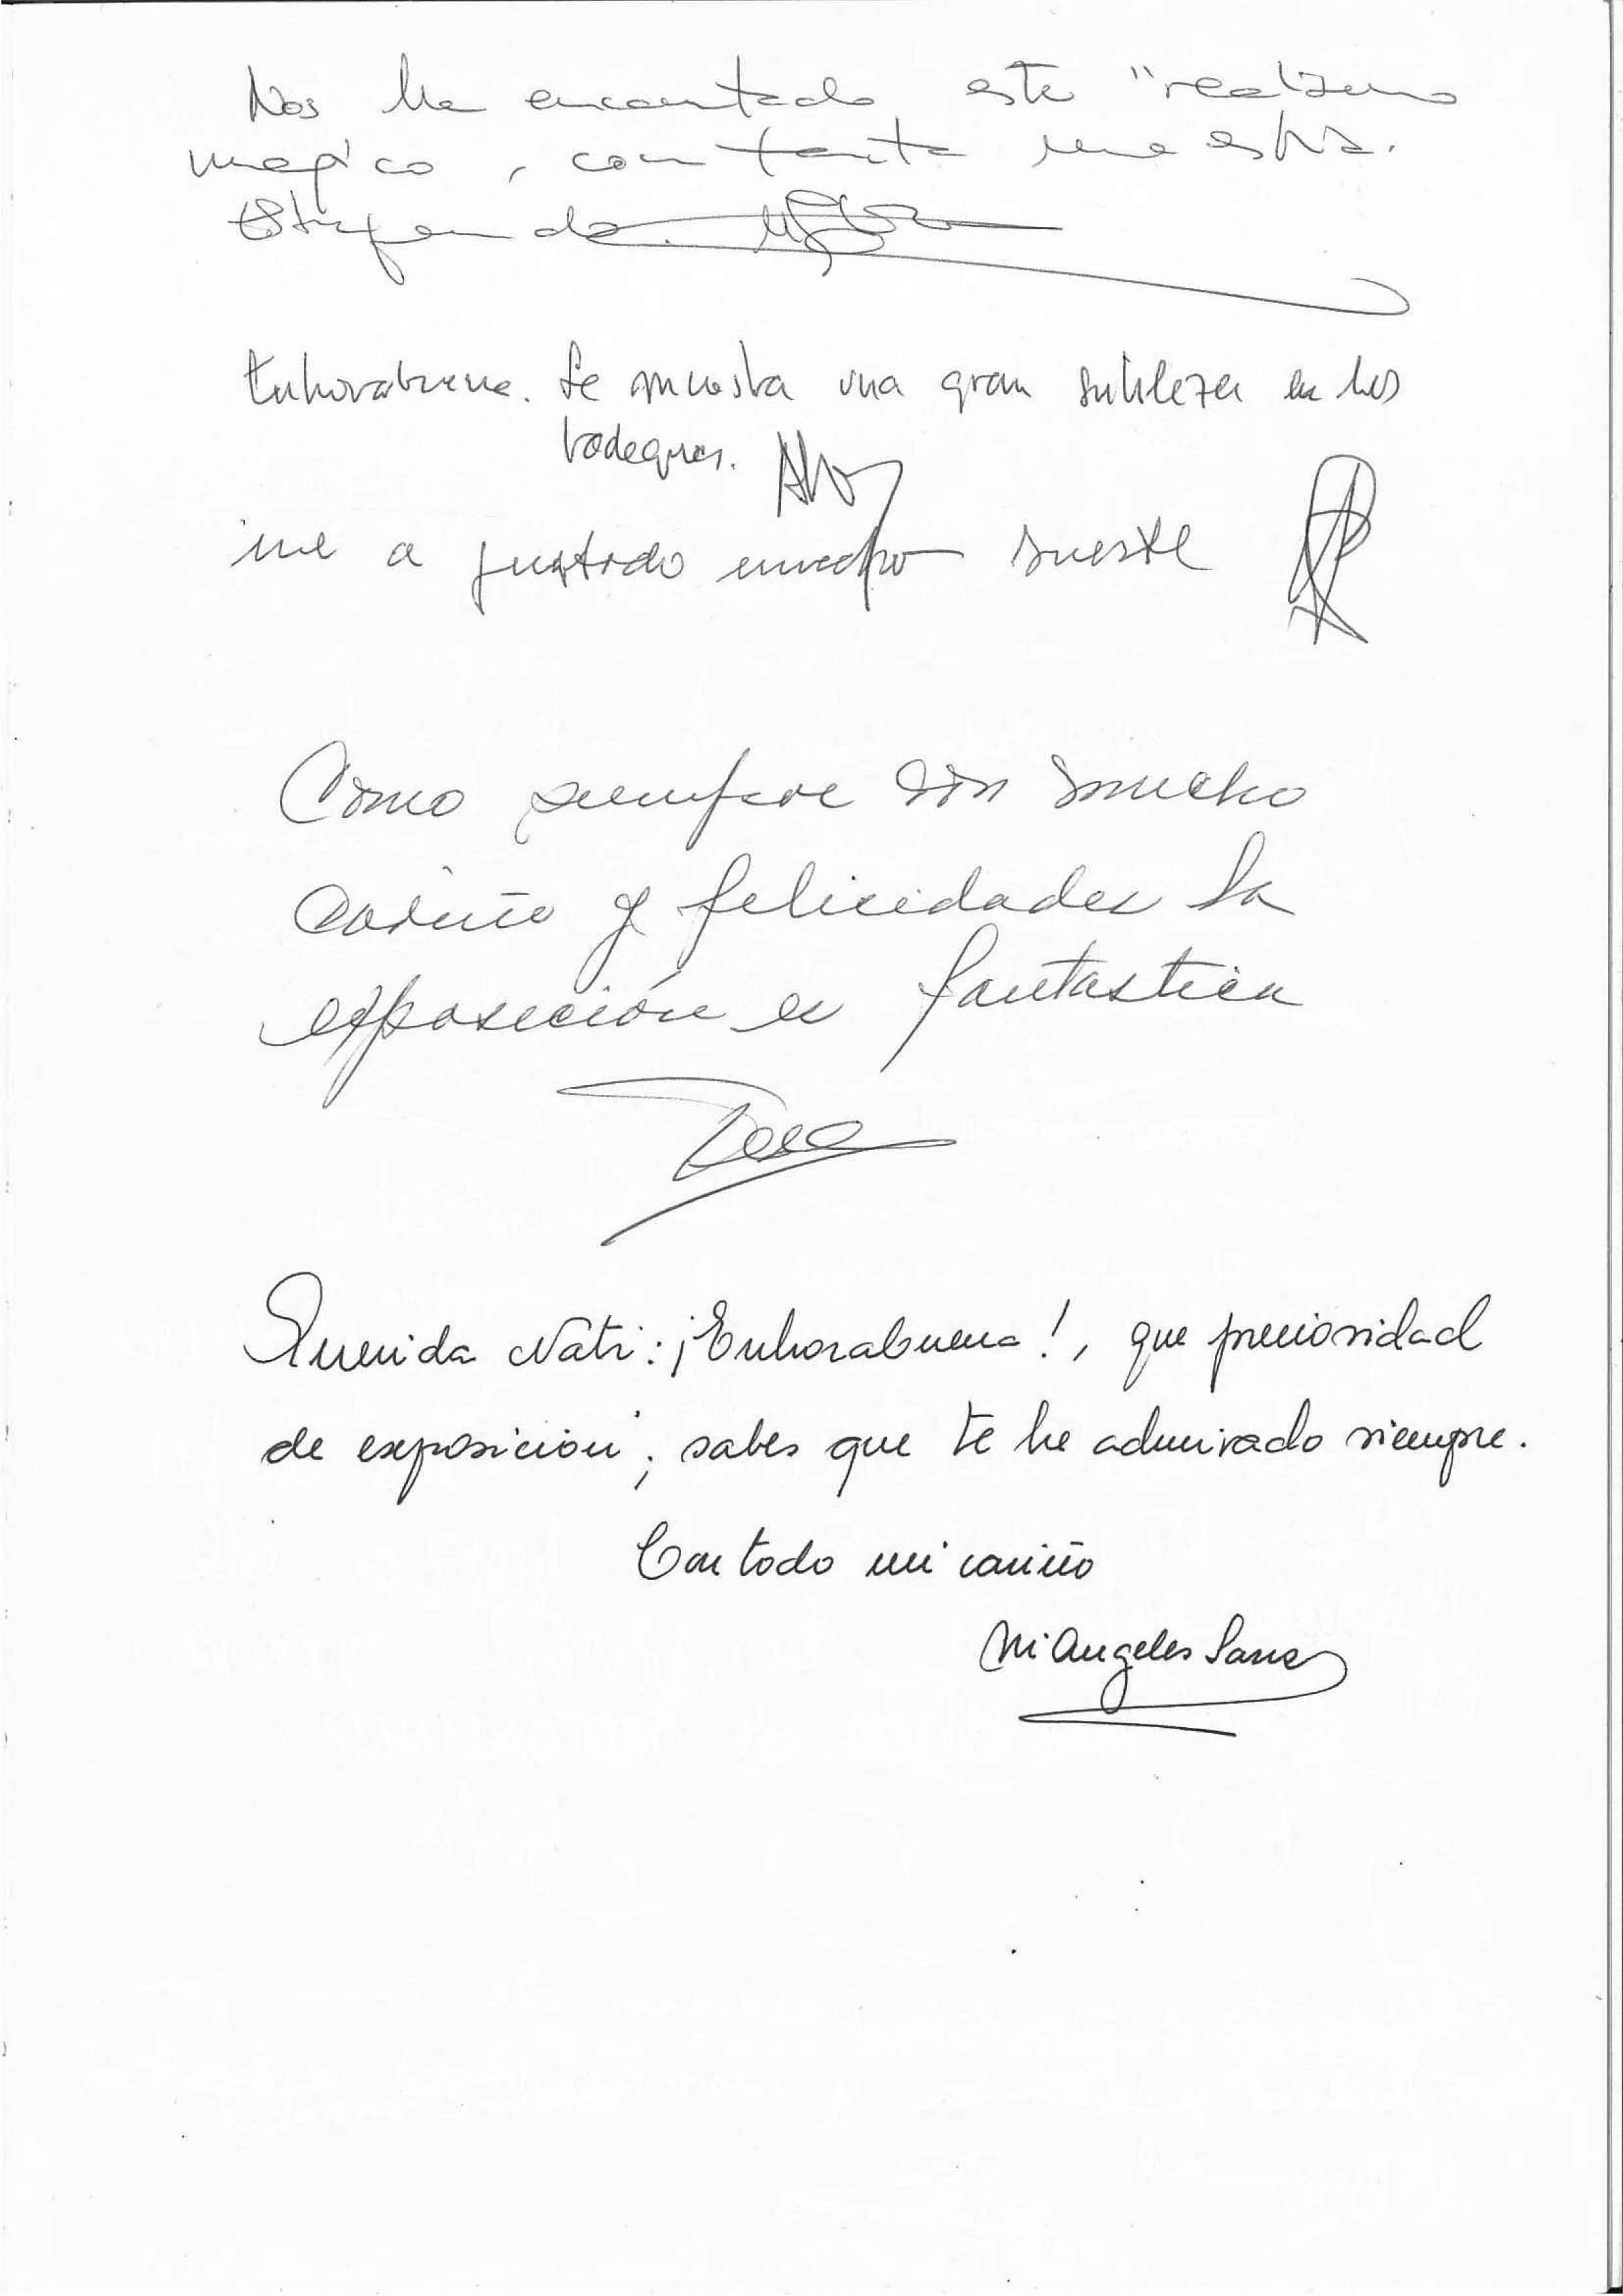 Nos ha encantado este "realismo
magico, con tanta maestria.
Estupendo.
Enhorabuena. Se muestra una gran sutileza en los
bodegones.
me a gustado mucho suerte
Como siempre con mucho
cariño y felicidades la
exposición es fantastica
Querida Nati: ¡Enhorabuena!, que preciosidad
de exposición; sabes que te he admirado siempre.
Con todo mi cariño
Mª Angeles Sanz